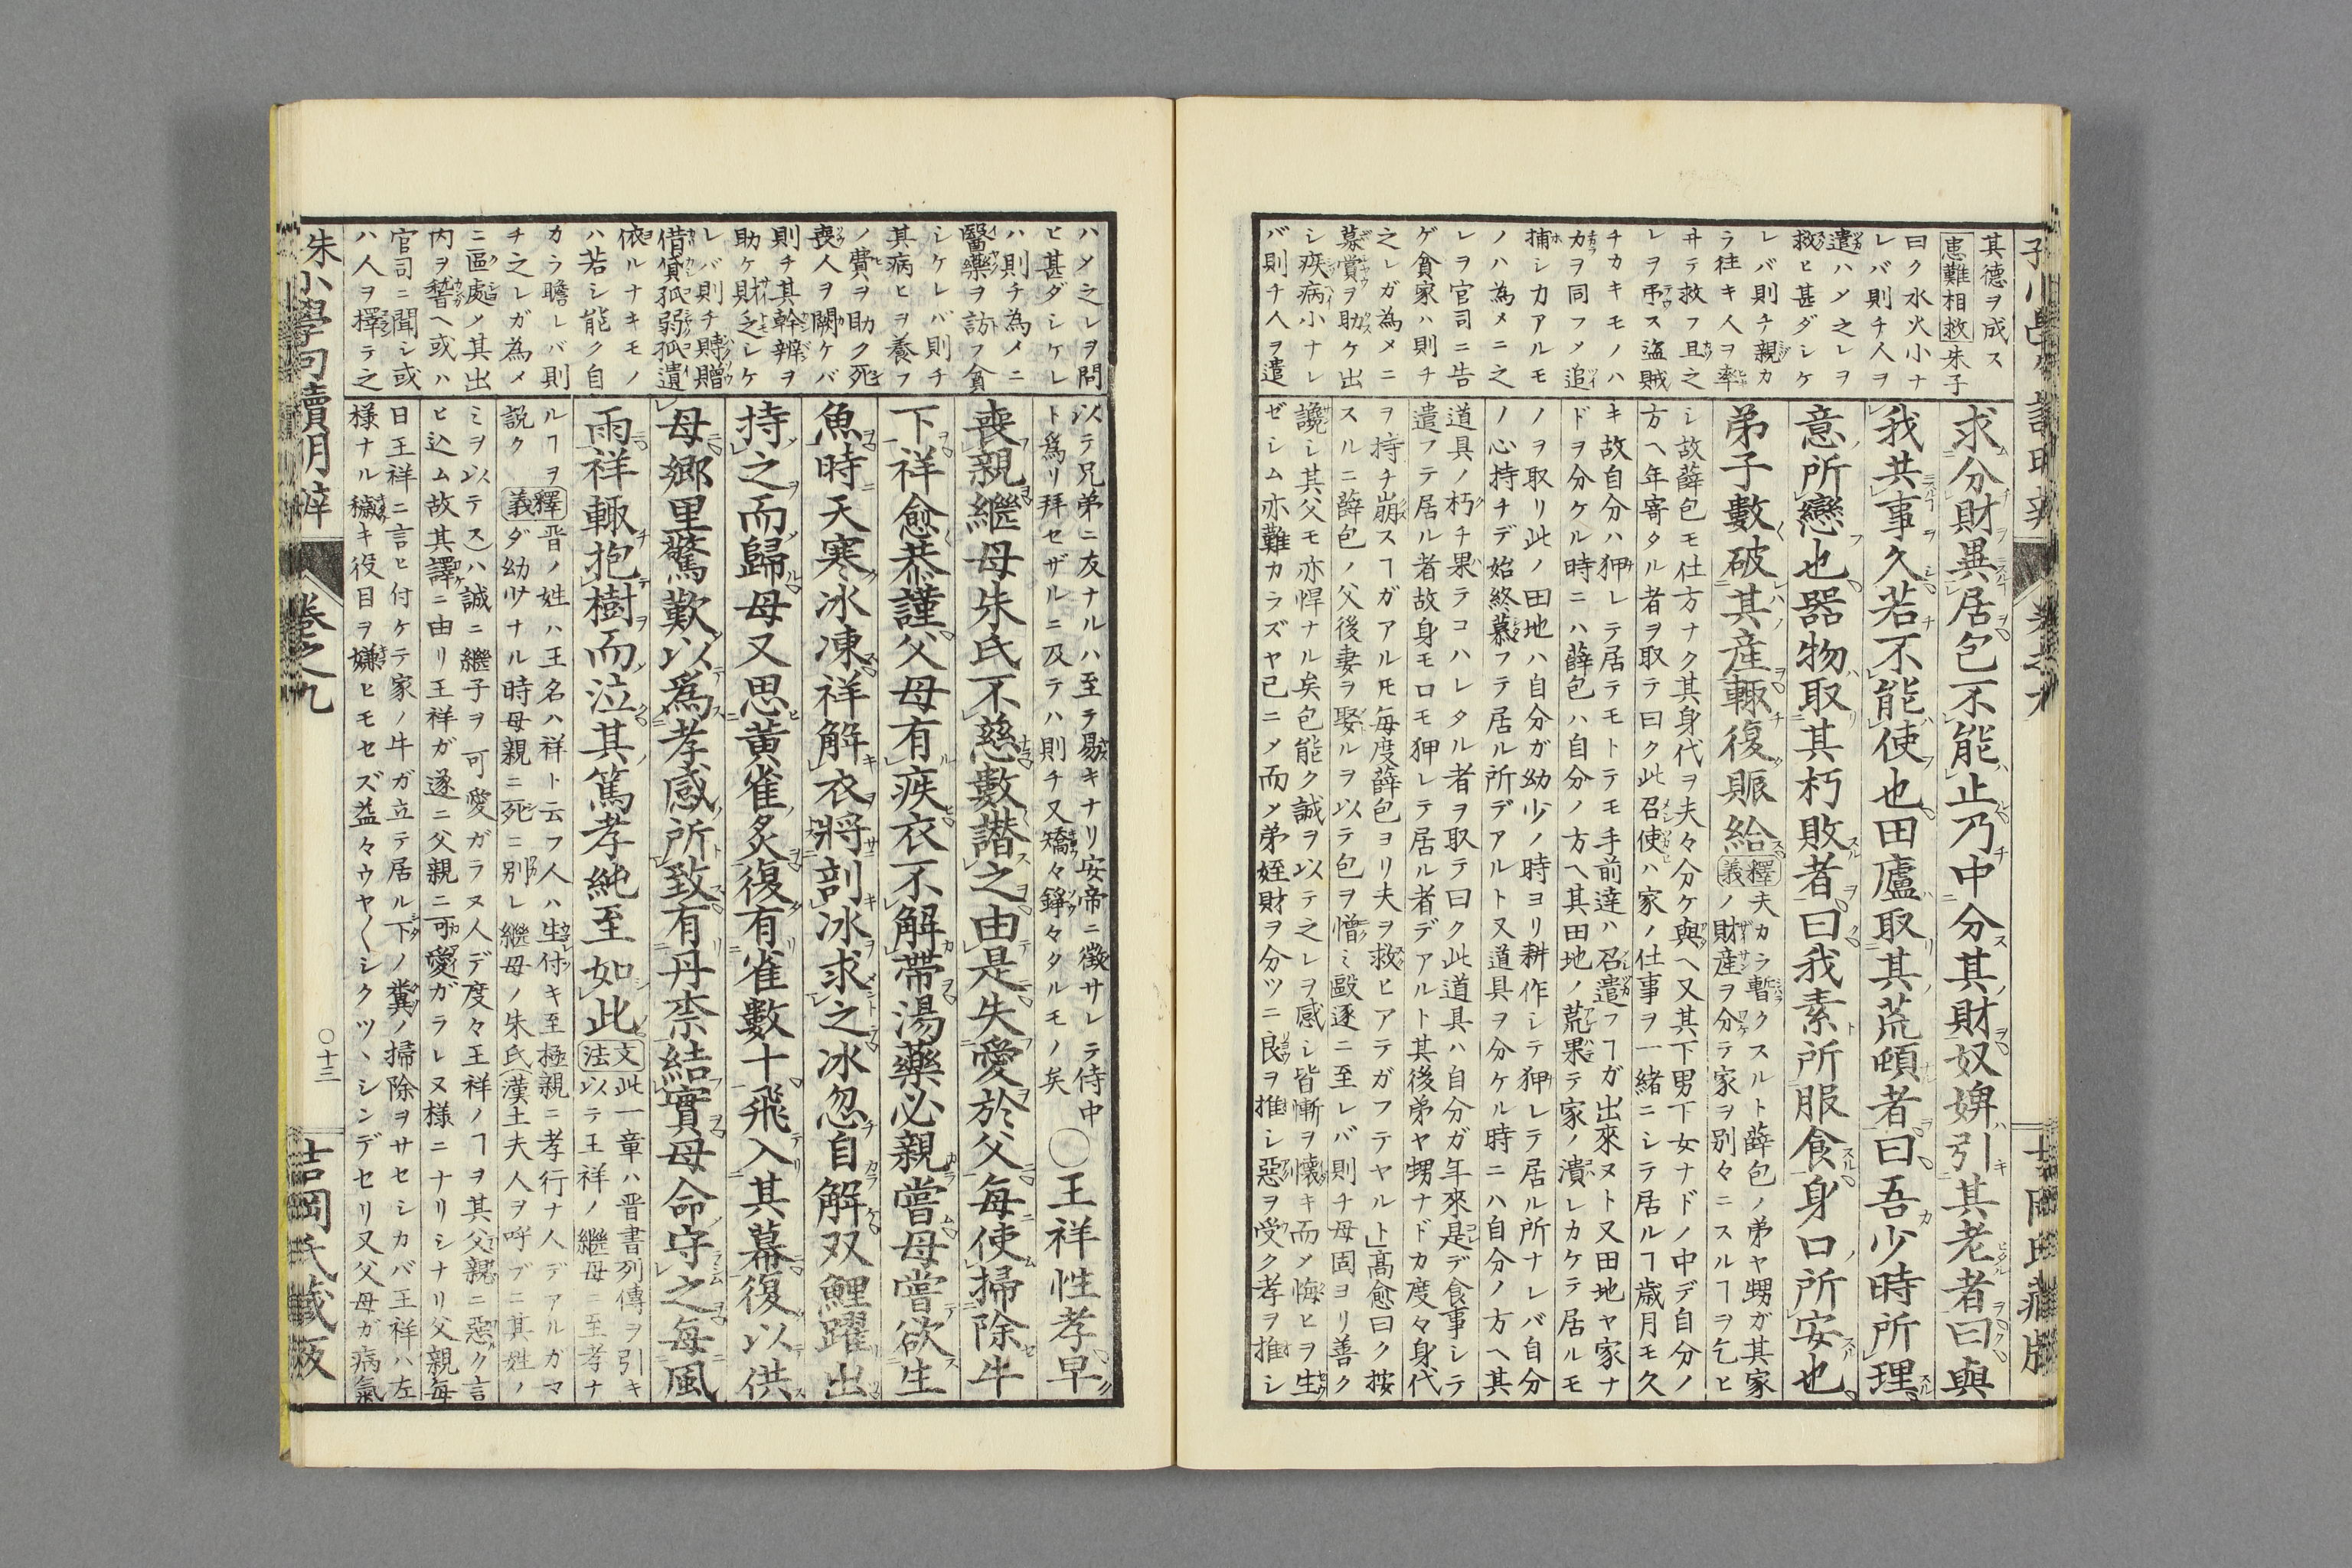 其德ヲ成ス
患難相救 朱子
曰ク水火小ナ
レバ則チ人ヲ
遣ハメ之レヲ
救ヒ甚ダシケ
レバ則チ親カ
ラ往キ人ヲ率
ヰテ救フ且之
レヲ弔ス盜賊
チカキモノハ
力ヲ同フメ追
捕シ力アルモ
ノハ為メニ之
レヲ官司ニ告
ゲ貧家ハ則チ
之レガ為メニ
募賞ヲ助ケ出
シ疾病小ナレ
バ則チ人ヲ遣
求分財異居包不能止乃中分其財奴婢引其老者曰與
我共事久若不能使也田廬取其荒頓者曰吾少時所理
意所戀也器物取其朽敗者曰我素所服食身口所安也
弟子數破其產輒復賑給 釋義 夫カラ暫クスルト薛包ノ弟ヤ甥ガ其家
ノ財産ヲ分テ家ヲ別々ニスルヿヲ乞ヒ
シ故薛包モ仕方ナク其身代ヲ夫々分ケ與ヘ又其下男下女ナドノ中デ自分ノ
方ヘ年寄タル者ヲ取テ曰ク此召使ハ家ノ仕事ヲ一緒ニシテ居ルヿ歳月モ久
キ故自分ハ狎レテ居テモトテモ手前達ハ召遣フヿガ出來ヌト又田地ヤ家ナ
ドヲ分ケル時ニハ薛包ハ自分ノ方ヘ其田地ノ荒果テ家ノ潰レカケテ居ルモ
ノヲ取リ此ノ田地ハ自分ガ幼少ノ時ヨリ耕作シテ狎レテ居ル所ナレバ自分
ノ心持チデ始終慕フテ居ル所デアルト又道具ヲ分ケル時ニハ自分ノ方ヘ其
道具ノ朽チ果テコハレタル者ヲ取テ曰ク此道具ハ自分ガ年來是デ食事シテ
遣フテ居ル者故身モ口モ狎レテ居ル者デアルト其後弟ヤ甥ナドカ度々身代
ヲ持チ崩スヿガアルモ毎度薛包ヨリ夫ヲ救ヒアテガフテヤルト」髙愈曰ク按
スルニ薛包ノ父後妻ヲ娶ルヲ以テ包ヲ憎ミ毆逐ニ至レバ則チ母固ヨリ善ク
讒シ其父モ亦悍ナル矣包能ク誠ヲ以テ之レヲ感シ皆慚ヲ懷キ而メ悔ヒヲ生
ゼシム亦難カラズヤ已ニメ而メ弟姪財ヲ分ツニ良ヲ推シ惡ヲ受ク孝ヲ推シ
ハメ之レヲ問
ヒ甚ダシケレ
ハ則チ為メニ
醫藥ヲ訪フ貧
シケレバ則チ
其病ヒヲ養フ
ノ費ヲ助ク死
喪人ヲ闕ケバ
則チ其幹辨ヲ
助ケ財乏シケ
レバ則チ賻贈
借貸孤弱孤遺
依ルナキモノ
ハ若シ能ク自
カラ贍レバ則
チ之レガ為メ
ニ區處メ其出
内ヲ稽ヘ或ハ
官司ニ聞シ或
ハ人ヲ擇テ之
以テ兄弟ニ友ナルハ至テ易キナリ安帝ニ徴サレテ侍中
ト為リ拜セザルニ及テハ則チ又矯々錚々タルモノ矣 〇王祥性孝早
喪親繼母朱氏不慈數譖之由是失愛於父每使掃除牛
下祥愈恭謹父母有疾衣不解帶湯藥必親嘗母嘗欲生
魚時天寒冰凍祥解衣將剖冰求之冰忽自解双鯉躍出
持之而歸母又思黃雀炙復有雀數十飛入其幕復以供
母鄉里驚歎以為孝感所致有丹柰結實母命守之每風
雨祥輒抱樹而泣其篤孝純至如此 文法 此一章ハ晋書列傳ヲ引キ
以テ王祥ノ繼母ニ至孝ナ
ルヿヲ 釋義 晋ノ姓ハ王名ハ祥ト云フ人ハ生付キ至極親ニ孝行ナ人デアルガマ
説ク ダ幼少ナル時母親ニ死ニ別レ繼母ノ朱氏(漢土夫人ヲ呼ブニ其姓ノ
ミヲ以テス)ハ誠ニ繼子ヲ可愛ガラヌ人デ度々王祥ノヿヲ其父親ニ惡ク言
ヒ込ム故其譯ニ由リ王祥ガ遂ニ父親ニ可愛ガラレヌ様ニナリシナリ父親每
日王祥ニ言ヒ付ケテ家ノ牛ガ立テ居ル下ノ糞ノ掃除ヲサセシカバ王祥ハ左
樣ナル穢キ役目ヲ嫌ヒモセズ益々ウヤ〱シクツヽシンデセリ又父母ガ病氣
朱小學句讀明辨 卷之九 〇十三 吉岡氏藏版